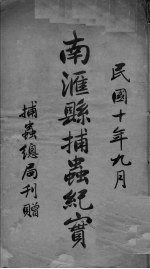 民國十年九月
南滙縣捕蟲紀實
捕蟲總局刊贈